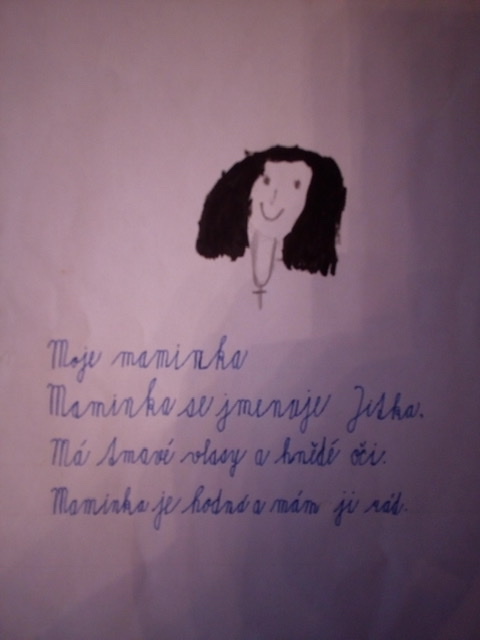 Moje maminka
Maminka se jmenuje Jitka.
Má tmavé vlasy a hnědé oči.
Maminka je hodná a mám ji rád.